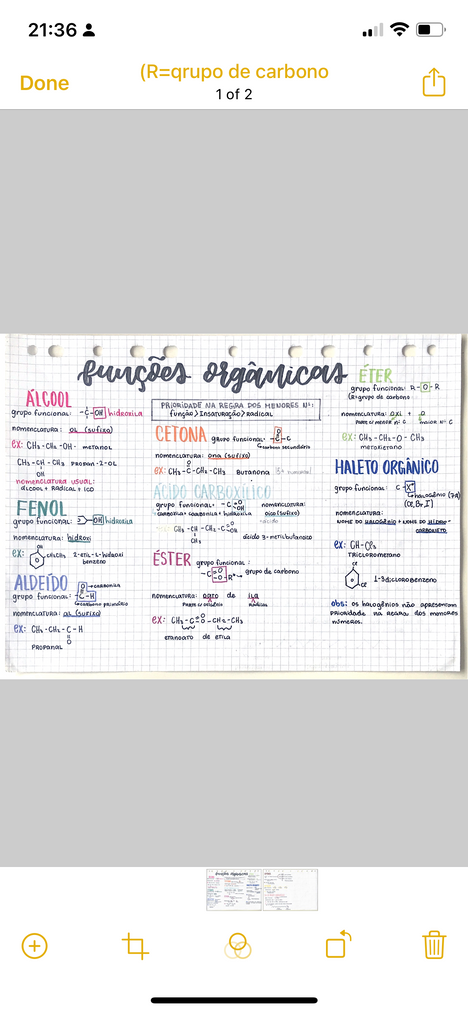 21:36
Done
(R=qrupo de carbono
1 of 2
funções orgânicas
ÁLCOOL
grupo funcional: -C-OH hidroxila
nomenclatura: OL (sufixo)
ex: CH3-CH2-OH- metanol
CH3-CH-CH3 propan-2-ol
OH
nomenclatura usual:
álcool + radical + ico
FENOL
grupo funcional: OH hidroxila
nomenclatura: hidroxi
ex: OH
CH2CH3 2-etil-1-hidroxi
benzeno
ALDEÍDO
O → carbonila
grupo funcional: -C-H
carbono primário
nomenclatura: al (sufixo)
ex: CH3-CH2-C-H
O
propanal
PRIORIDADE NA REGRA DOS MENORES Nº:
função > Insaturação > Radical
CETONA
O
grupo funcional: -C-C
carbono secundário
nomenclatura: ona (sufixo)
O
ex: CH3-C-CH2-CH3 butanona
ÁCIDO CARBOXÍLICO
grupo funcional: -C=O
OH
carbonila + hidroxila
nomenclatura:
oico (sufixo)
CH3-CH-CH2-C=O
OH
CH3
ácido 3-metilbutanoico
ÉSTER
grupo funcional:
-C=O
-O-R* → grupo de carbono
nomenclatura: oato de ila
parte c/ oxigênio radical
ex: CH3-C=O
O-CH2-CH3
etanoato de etila
ÉTER
grupo funcional: R-O-R
(R=grupo de carbono
nomenclatura: oxi + o
parte c/ menor nº C maior nº C
ex: CH3-CH2-O-CH3
metoxietano
HALETO ORGÂNICO
grupo funcional: C-X
halogênio (7A)
(Cl, Br, I)
nomenclatura:
nome do halogênio + nome do hidro-
carboneto
ex: CH-Cl3
triclorometano
Cl
1-3diclorobenzeno
Cl
obs: os halogênios não apresentam
prioridade na regra dos menores
números.